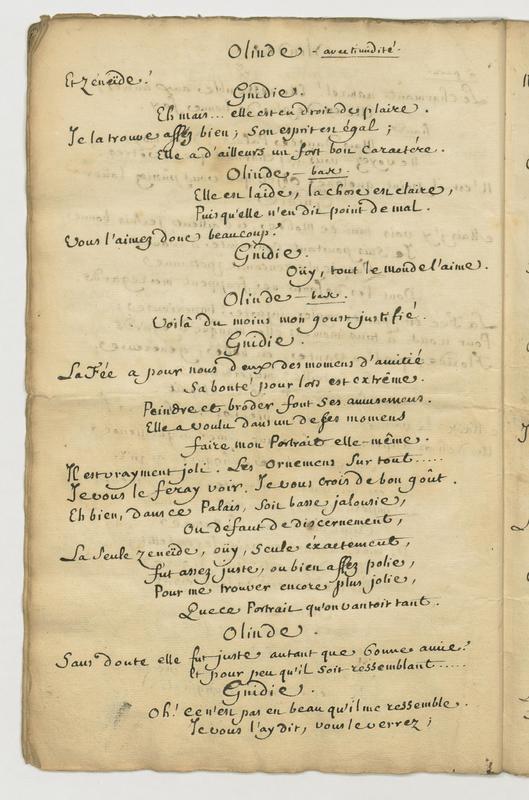 Olinde - avec timidité.
Et zeneïde?
Gnidie.
Eh mais... elle est en droit de plaire.
Je la trouve assez bien; son esprit est égal;
Elle a d'ailleurs un fort bon caractére.
Olinde - bas.
Elle est laide, la chose est claire,
Puisqu'elle n'en dit point de mal.
Vous l'aimez donc beaucoup?
Gnidie.
Oüy, tout le monde l'aime.
Olinde - bas.
Voilà du moins mon goust justifié.
Gnidie.
La Fée a pour nous deux des momens d'amitié
Sa bonté pour lors est extrême.
Peindre et broder font ses amusemens.
Elle a voulu dans un de ses momens
faire mon Portrait elle-même.
Il est vrayment joli. Les Ornemens sur tout.....
Je vous le feray voir. Je vous crois de bon goût.
Eh bien, dans ce Palais, soit basse jalousie,
Ou défaut de discernement,
La seule zeneïde, oüy, seule éxactement,
fut assez juste, ou bien assez polie,
Pour me trouver encore plus jolie,
Que ce Portrait qu'on vantoit tant.
Olinde.
Sans doute elle fut juste autant que bonne amie?
Et pour peu qu'il soit ressemblant.....
Gnidie.
Oh! ce n'est pas en beau qu'il me ressemble.
Je vous l'ay dit, vous le verrez;